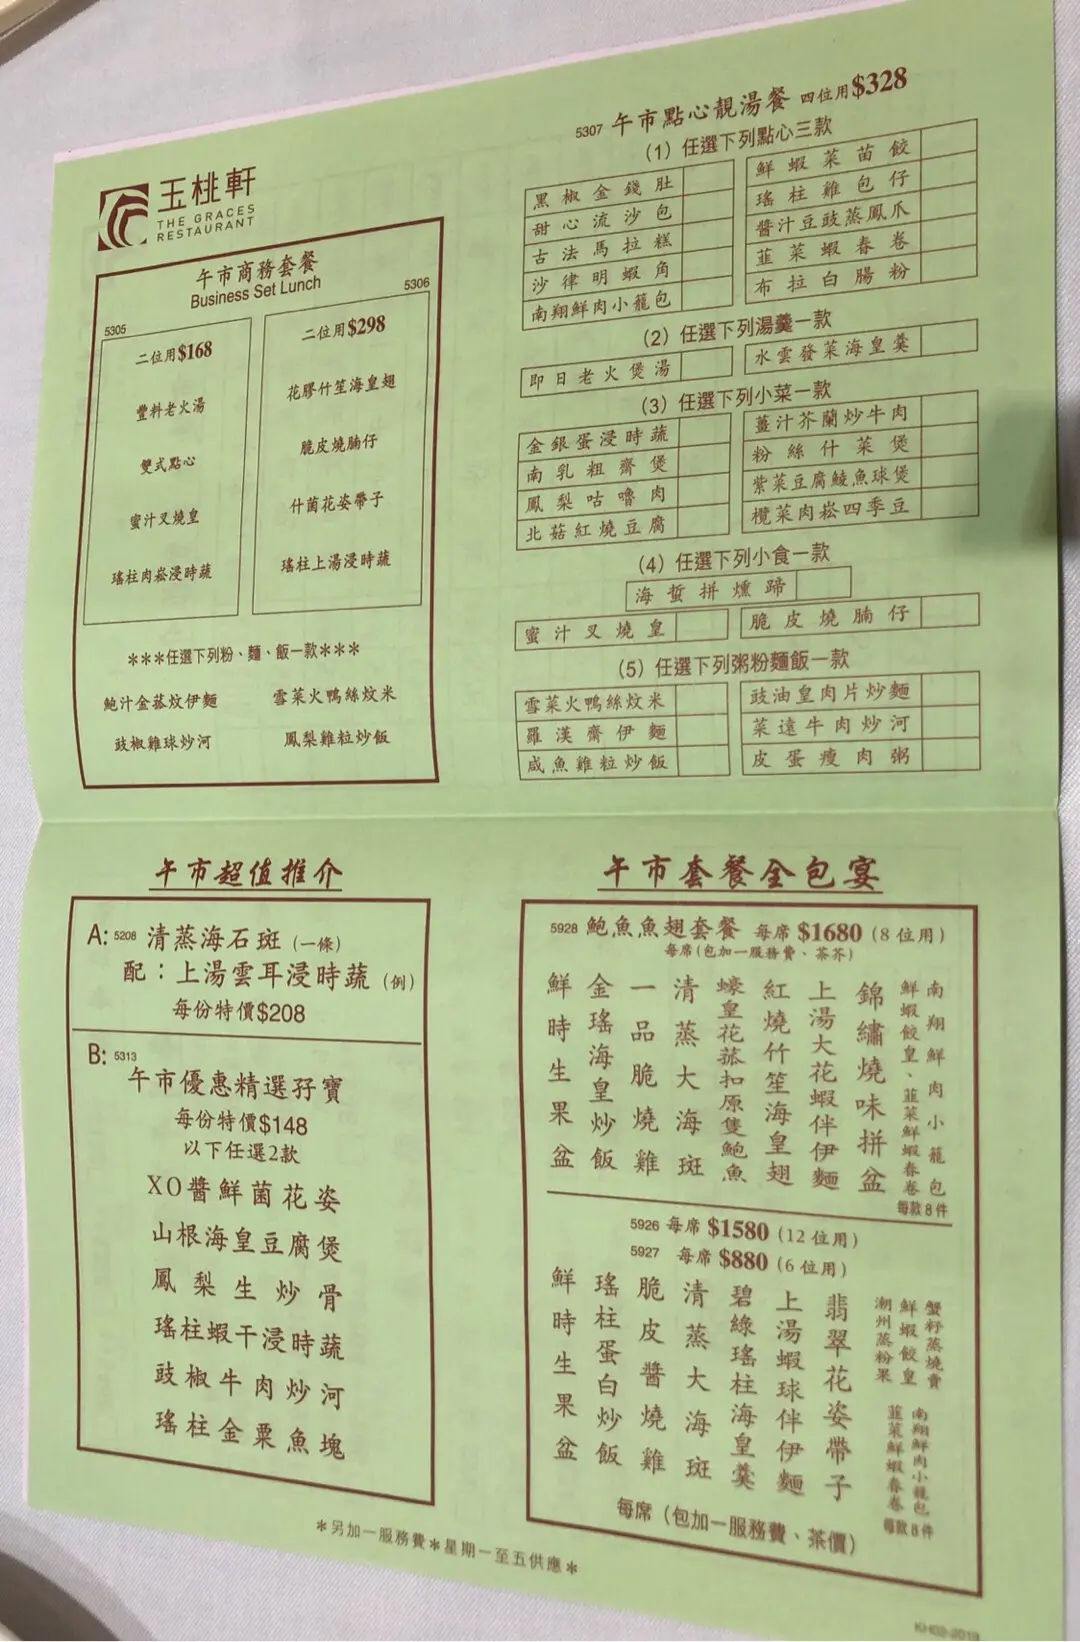 玉桃軒
THE GRACES
RESTAURANT
午市商務套餐
Business Set Lunch
5305
二位用$168
豐料老火湯
雙式點心
蜜汁叉燒皇
瑤柱肉崧浸時蔬
5306
二位用$298
花膠竹笙海皇翅
脆皮燒腩仔
什菌花姿帶子
瑤柱上湯浸時蔬
***任選下列粉、麵、飯一款***
鮑汁金菇炆伊麵 雪菜火鴨絲炆米
豉椒雞球炒河 鳳梨雞粒炒飯
5307 午市點心靚湯餐 四位用$328
(1) 任選下列點心三款
黑椒金錢肚 鮮蝦菜苗餃
甜心流沙包 瑤柱雞包仔
古法馬拉糕 醬汁豆豉蒸鳳爪
沙律明蝦角 韮菜蝦春卷
南翔鮮肉小籠包 布拉白腸粉
(2) 任選下列湯羹一款
即日老火煲湯 水雲發菜海皇羹
(3) 任選下列小菜一款
金銀蛋浸時蔬 薑汁芥蘭炒牛肉
南乳粗齋煲 粉絲什菜煲
鳳梨咕嚕肉 紫菜豆腐鯪魚球煲
北菇紅燒豆腐 欖菜肉崧四季豆
(4) 任選下列小食一款
海蜇拼燻蹄
蜜汁叉燒皇 脆皮燒腩仔
(5) 任選下列粥粉麵飯一款
雪菜火鴨絲炆米 豉油皇肉片炒麵
羅漢齋伊麵 菜遠牛肉炒河
咸魚雞粒炒飯 皮蛋瘦肉粥
午市超值推介
A: 5208 清蒸海石斑 (一條)
配：上湯雲耳浸時蔬 (例)
每份特價$208
B: 5313
午市優惠精選孖寶
每份特價$148
以下任選2款
XO醬鮮菌花姿
山根海皇豆腐煲
鳳梨生炒骨
瑤柱蝦干浸時蔬
豉椒牛肉炒河
瑤柱金粟魚塊
午市套餐全包宴
5928 鮑魚魚翅套餐 每席 $1680 (8 位用)
每席(包加一服務費、茶芥)
南翔鮮肉小籠包
鮮蝦餃皇、韮菜鮮蝦春卷
每款8件
錦繡燒味拼盆
上湯大花蝦伴伊麵
紅燒竹笙海皇翅
蠔皇花菇扣原隻鮑魚
清蒸大海斑
一品脆燒雞
金瑤海皇炒飯
鮮時生果盆
5926 每席 $1580 (12 位用)
5927 每席 $880 (6 位用)
蟹籽蒸燒賣
鮮蝦餃皇
潮州蒸粉果
南翔鮮肉小籠包
韮菜鮮蝦春卷
每款8件
翡翠花姿帶子
上湯蝦球伴伊麵
碧綠瑤柱海皇羹
清蒸大海斑
脆皮醬燒雞
瑤柱蛋白炒飯
鮮時生果盆
每席（包加一服務費、茶價）
*另加一服務費*星期一至五供應*
KH02-2019